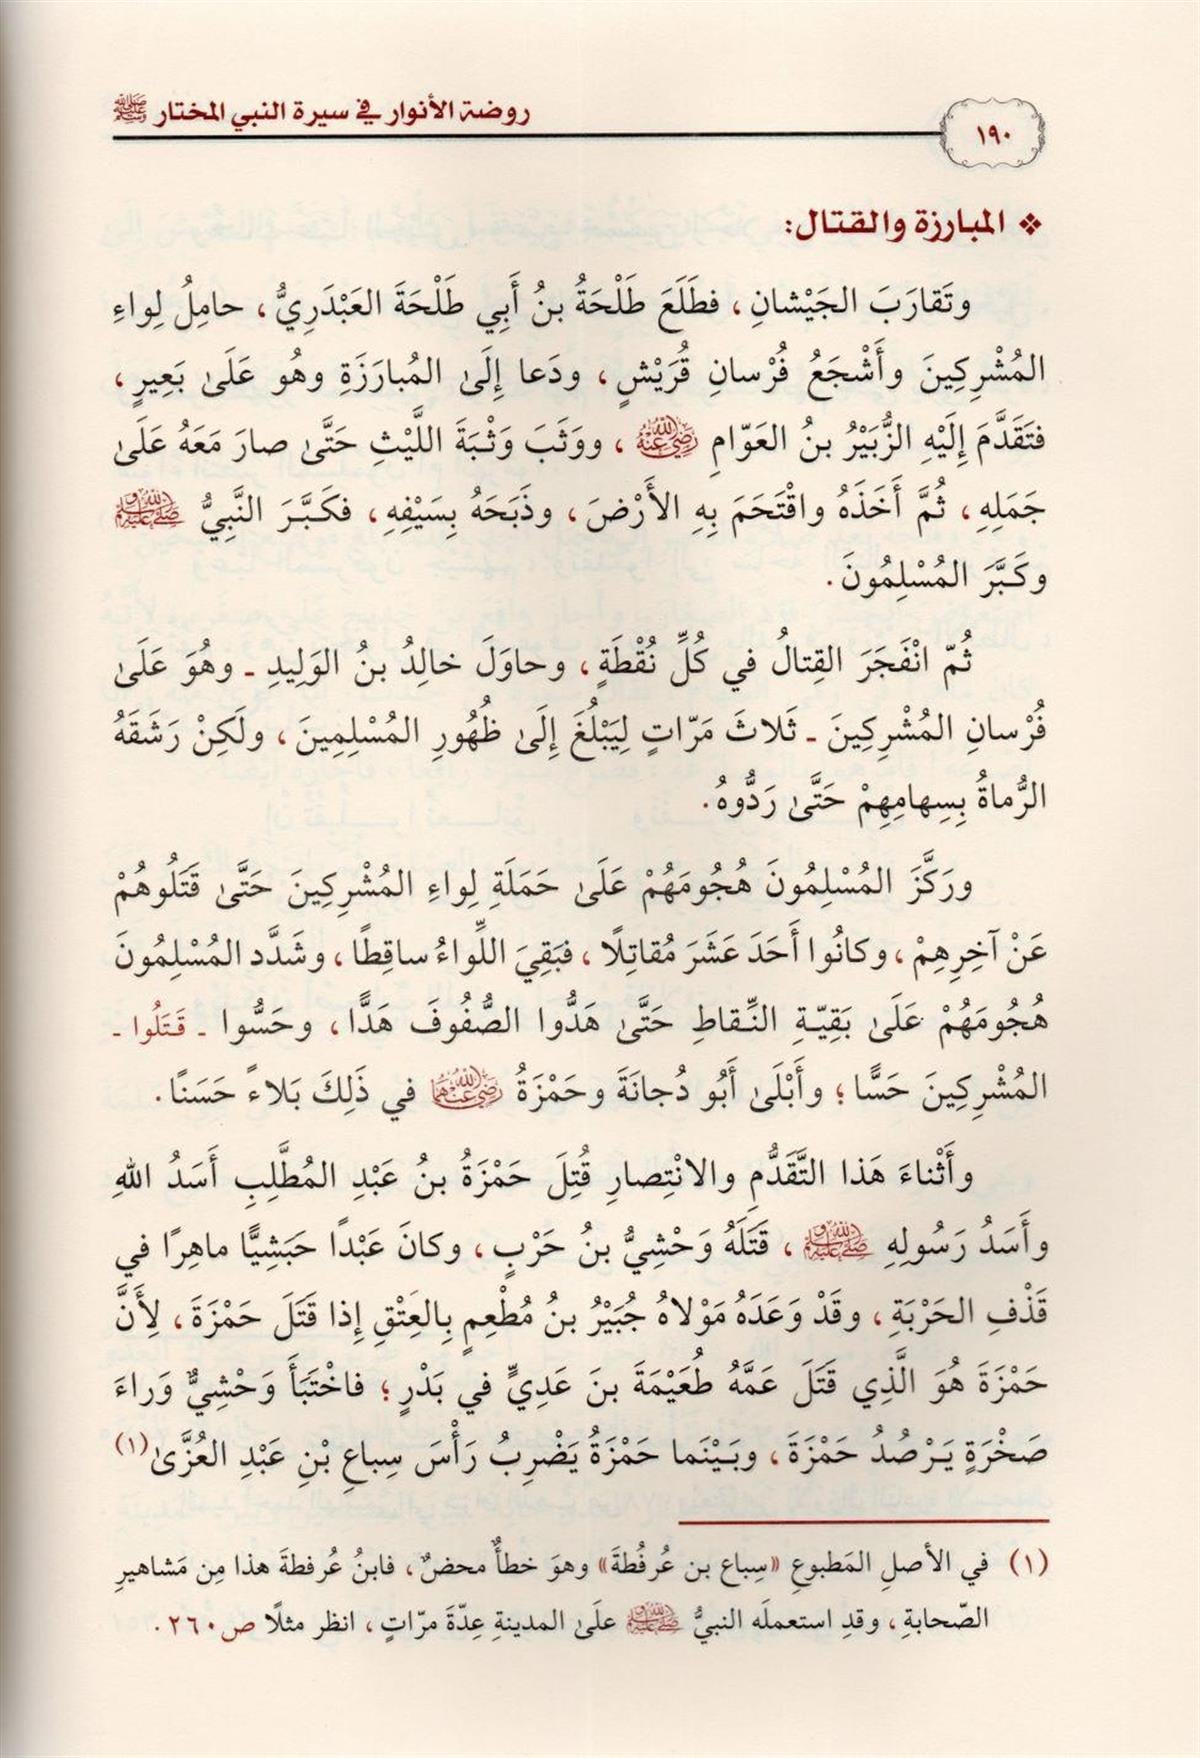 روضة الأنوار في سيرة النبي المختار ﷺ
١٩٠
❖ المبارزة والقتال:
وتَقارَبَ الجَيْشانِ، فطَلَعَ طَلْحَةُ بنُ أَبِي طَلْحَةَ العَبْدَرِيُّ، حامِلُ لِواءِ
المُشْرِكِينَ وأَشْجَعُ فُرْسانِ قُرَيْشٍ، ودَعا إِلَىٰ المُبارَزَةِ وهُو عَلَىٰ بَعِيرٍ،
فتَقَدَّمَ إِلَيْهِ الزُّبَيْرُ بنُ العَوّامِ رضي الله عنه، ووَثَبَ وَثْبَةَ اللَّيْثِ حَتَّىٰ صارَ مَعَهُ عَلَىٰ
جَمَلِهِ، ثُمَّ أَخَذَهُ واقْتَحَمَ بِهِ الأَرْضَ، وذَبَحَهُ بِسَيْفِهِ، فكَبَّرَ النَّبِيُّ ﷺ
وكَبَّرَ المُسْلِمُونَ.
ثُمّ انْفَجَرَ القِتالُ في كُلِّ نُقْطَةٍ، وحاوَلَ خالِدُ بنُ الوَلِيدِ ـ وهُوَ عَلَىٰ
فُرْسانِ المُشْرِكِينَ ـ ثَلاثَ مَرّاتٍ لِيَبْلُغَ إِلَىٰ ظُهُورِ المُسْلِمِينَ، ولَكِنْ رَشَقَهُ
الرُّماةُ بِسِهامِهِمْ حَتَّىٰ رَدُّوهُ.
ورَكَّزَ المُسْلِمُونَ هُجُومَهُمْ عَلَىٰ حَمَلَةِ لِواءِ المُشْرِكِينَ حَتَّىٰ قَتَلُوهُمْ
عَنْ آخِرِهِمْ، وكانُوا أَحَدَ عَشَرَ مُقاتِلًا، فبَقِيَ اللِّواءُ ساقِطًا، وشَدَّد المُسْلِمُونَ
هُجُومَهُمْ عَلَىٰ بَقِيّةِ النِّقاطِ حَتَّىٰ هَدُّوا الصُّفُوفَ هَدًّا، وحَسُّوا ـ قَتَلُوا ـ
المُشْرِكِينَ حَسًّا؛ وأَبْلَىٰ أَبُو دُجانَةَ وحَمْزَةُ رضي الله عنهما في ذَلِكَ بَلاءً حَسَنًا.
وأَثْناءَ هَذا التَّقَدُّمِ والانْتِصارِ قُتِلَ حَمْزَةُ بنُ عَبْدِ المُطَّلِبِ أَسَدُ اللهِ
وأَسَدُ رَسُولِهِ ﷺ، قَتَلَهُ وَحْشِيُّ بنُ حَرْبٍ، وكانَ عَبْدًا حَبَشِيًّا ماهِرًا في
قَذْفِ الحَرْبَةِ، وقَدْ وَعَدَهُ مَوْلاهُ جُبَيْرُ بنُ مُطْعِمٍ بِالعِتْقِ إِذا قَتَلَ حَمْزَةَ، لِأَنَّ
حَمْزَةَ هُوَ الَّذِي قَتَلَ عَمَّهُ طُعَيْمَةَ بنَ عَدِيٍّ في بَدْرٍ؛ فاخْتَبَأَ وَحْشِيٌّ وَراءَ
صَخْرَةٍ يَرْصُدُ حَمْزَةَ، وبَيْنَما حَمْزَةُ يَضْرِبُ رَأْسَ سِباعِ بْنِ عَبْدِ العُزَّىٰ(١)
(١) في الأصلِ المَطبوعِ «سِباع بن عُرفُطةَ» وهوَ خطأٌ محضٌ، فابنُ عُرفطةَ هذا مِن مَشاهيرِ
الصّحابةِ، وقدِ استعملَه النبيُّ ﷺ علَىٰ المدينةِ عِدّةَ مرّاتٍ، انظر مثلًا ص٢٦٠.